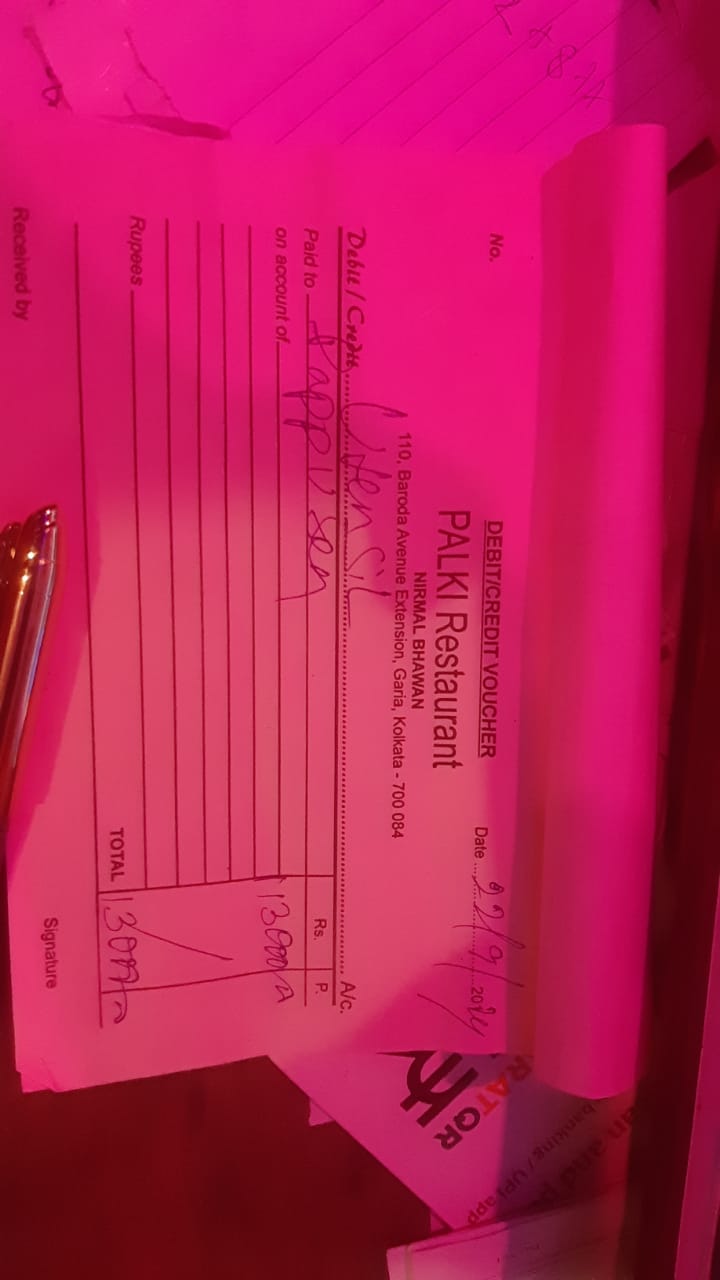 DEBIT/CREDIT VOUCHER
No.
Date 22/9/2024
PALKI Restaurant
NIRMAL BHAWAN
110, Baroda Avenue Extension, Garia, Kolkata - 700 084
Debit / Credit Utensil A/c.
Paid to Pappu Sen Rs. P.
on account of 13000/-
Rupees
TOTAL 13000/-
Received by
Signature
QR
banking / UPI app